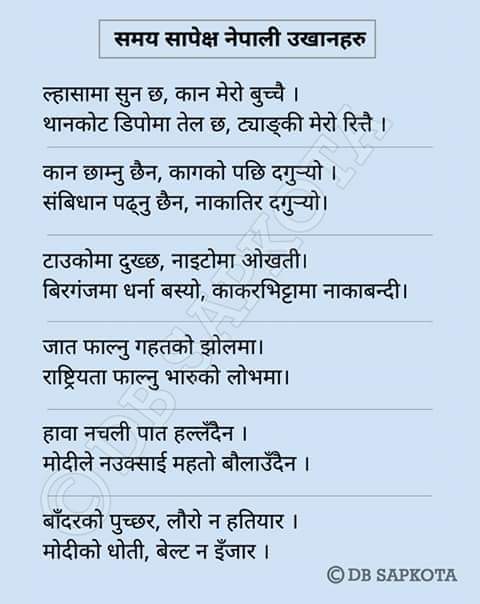 समय सापेक्ष नेपाली उखानहरु
ल्हासामा सुन छ, कान मेरो बुच्चै ।
थानकोट डिपोमा तेल छ, ट्याङ्की मेरो रित्तै ।
कान छाम्नु छैन, कागको पछि दगुऱ्यो ।
संबिधान पढ्नु छैन, नाकातिर दगुऱ्यो।
टाउकोमा दुख्छ, नाइटोमा ओखती।
बिरगंजमा धर्ना बस्यो, काकरभिट्टामा नाकाबन्दी।
जात फाल्नु गहतको झोलमा।
राष्ट्रियता फाल्नु भारुको लोभमा।
हावा नचली पात हल्लँदैन ।
मोदीले नउक्साई महतो बौलाउँदैन ।
बाँदरको पुच्छर, लौरो न हतियार ।
मोदीको धोती, बेल्ट न इँजार ।
© DB SAPKOTA
© DB SAPKOTA